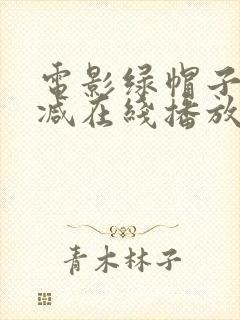 電影绿帽子
减在綫播放
青木林子